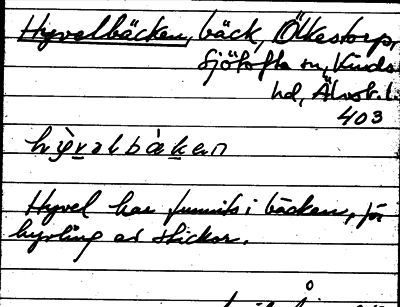 Hyvelbäcken, bäck, Ölkestorp,
Sjötofta sn, Kinds
hd, Älvsb. l.
403
hỳvəlbàkən
Hyvel har funnits i bäcken, för
hyvling av stickor.